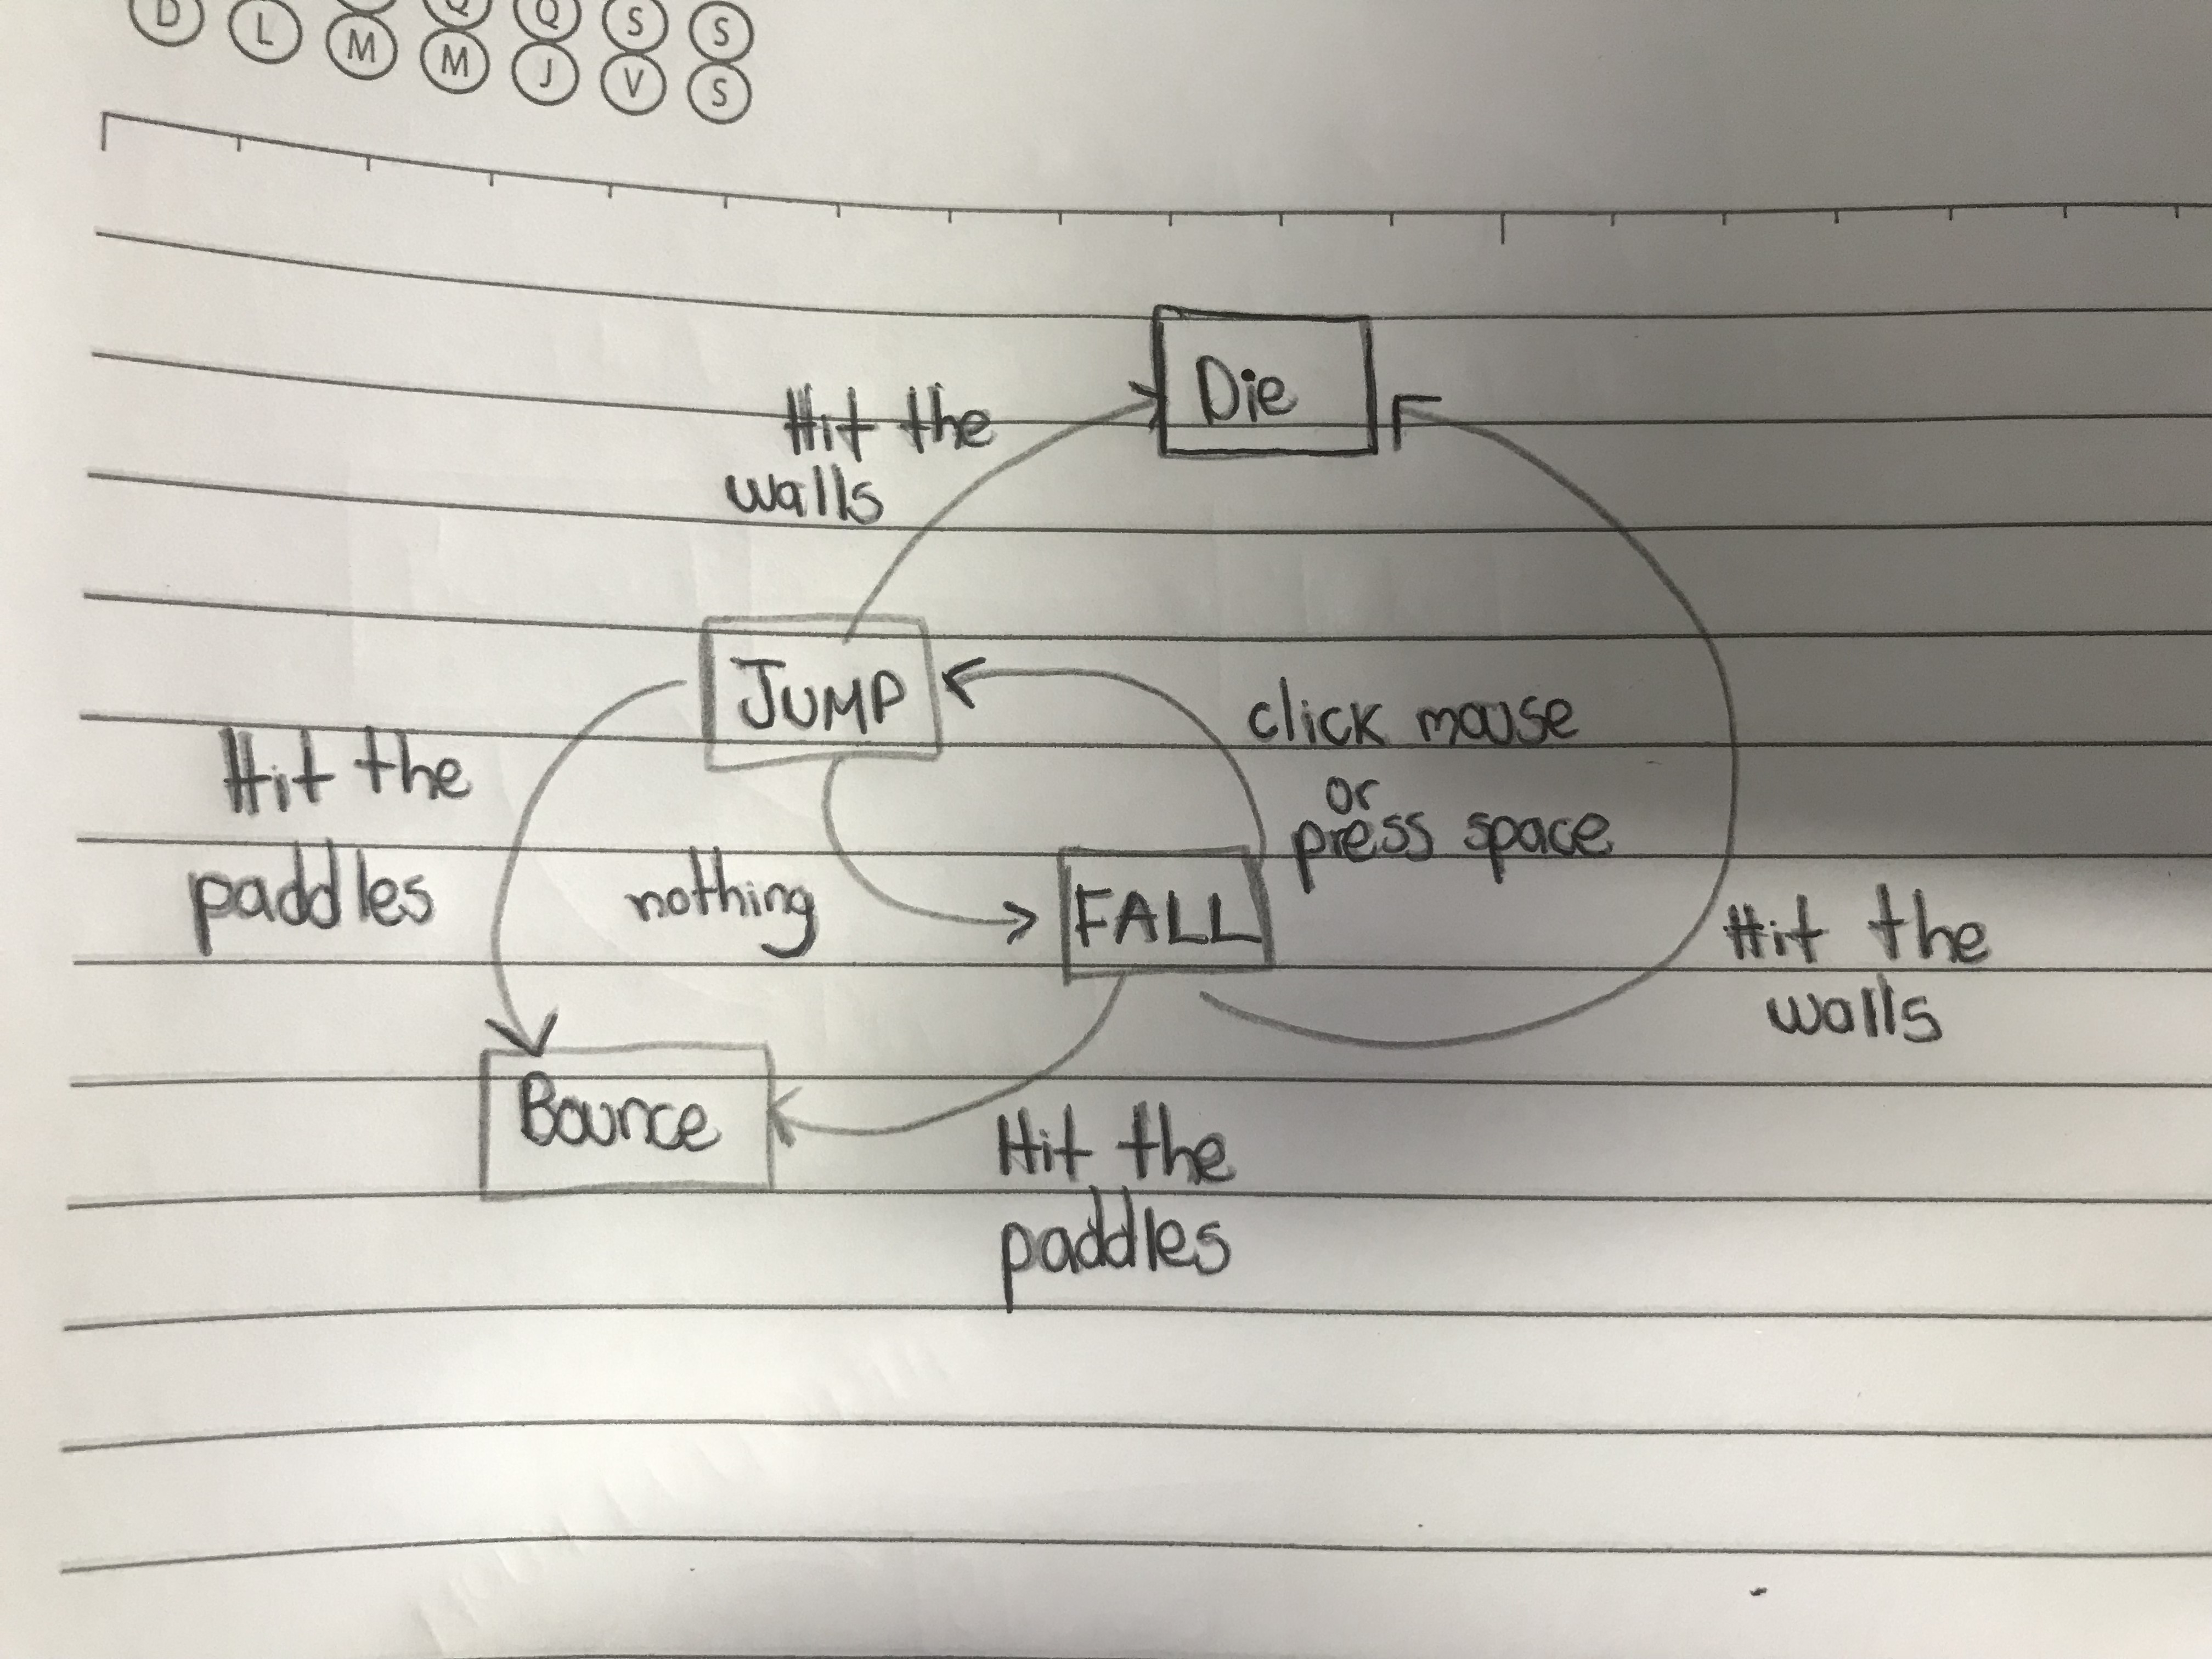 D L M M J V S
Q Q S S
Die
Hit the
walls
JUMP
click mouse
or
press space
Hit the
paddles
nothing
FALL
Hit the
walls
Bounce
Hit the
paddles